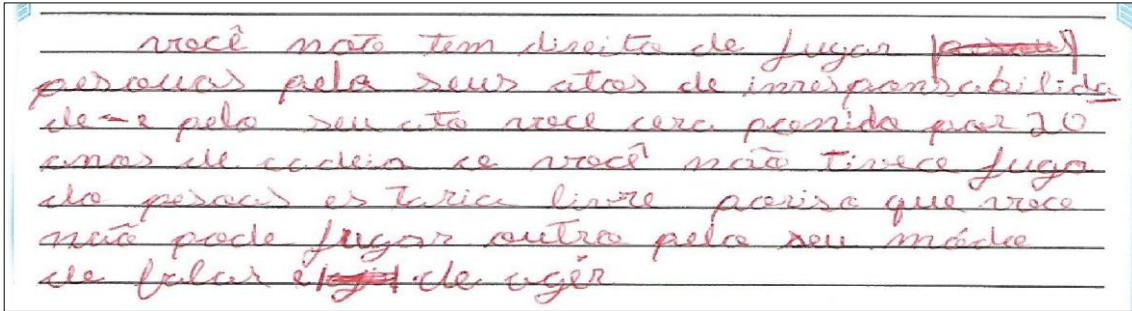 você não tem direito de jugar
pesouas pela seus atos de inresponsabilida
de-e pelo seu ato voce cera ponido por 20
anos de cadeia ce você não tivece juga
do pesoas es taria livre poriso que voce
não pode jugar outro pelo seu módo
de falar e de agir